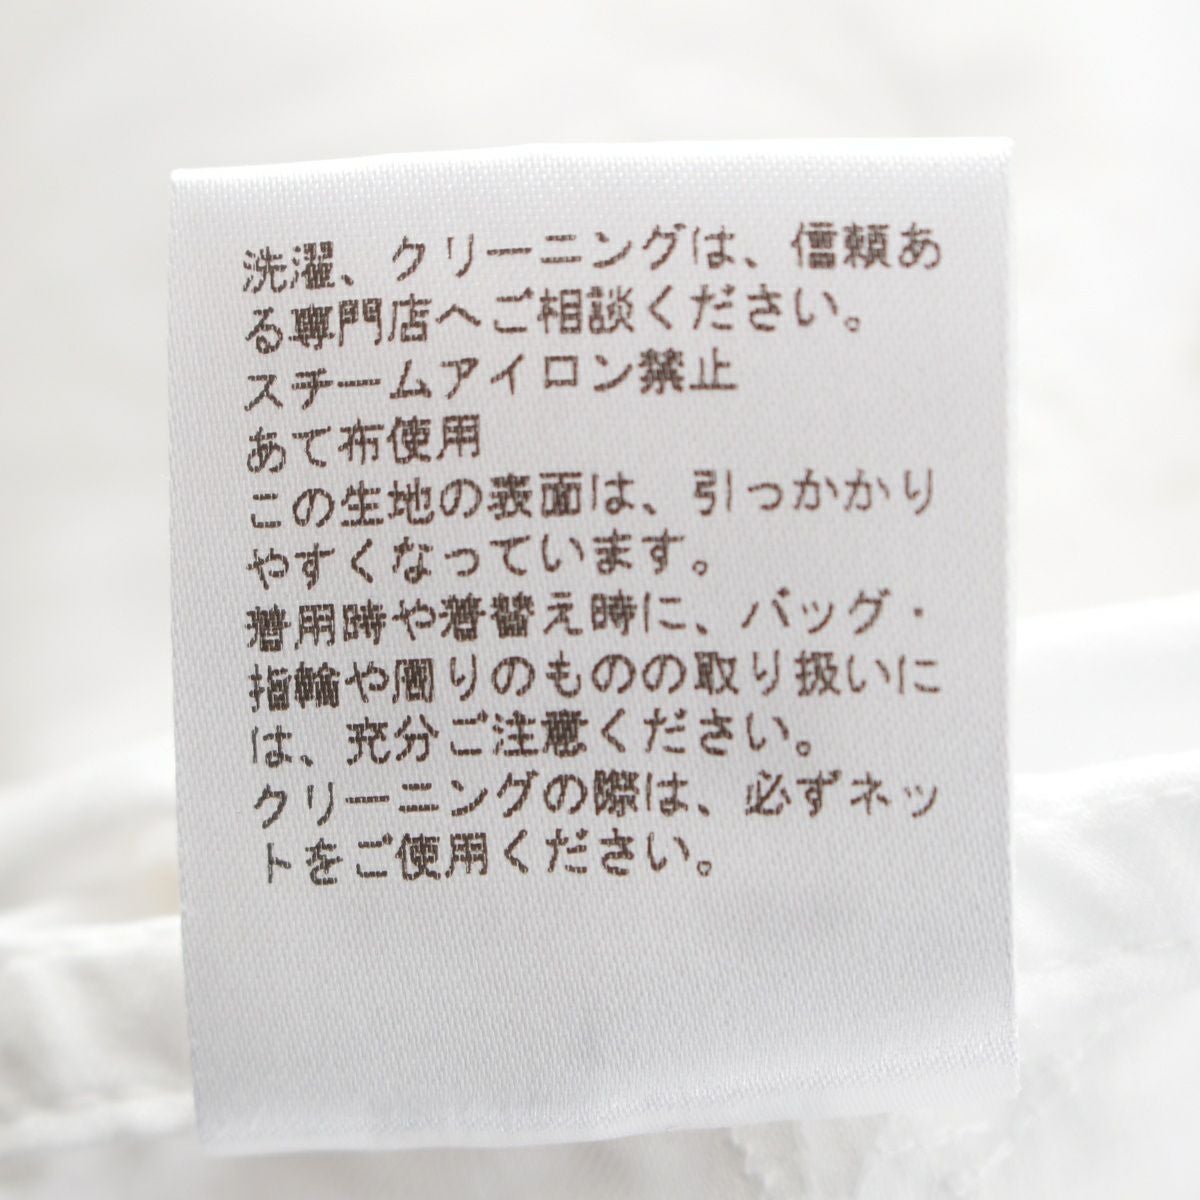 洗濯、クリーニングは、信頼あ
る専門店へご相談ください。
スチームアイロン禁止
あて布使用
この生地の表面は、引っかかり
やすくなっています。
着用時や着替え時に、バッグ・
指輪や周りのものの取り扱いに
は、充分ご注意ください。
クリーニングの際は、必ずネッ
トをご使用ください。